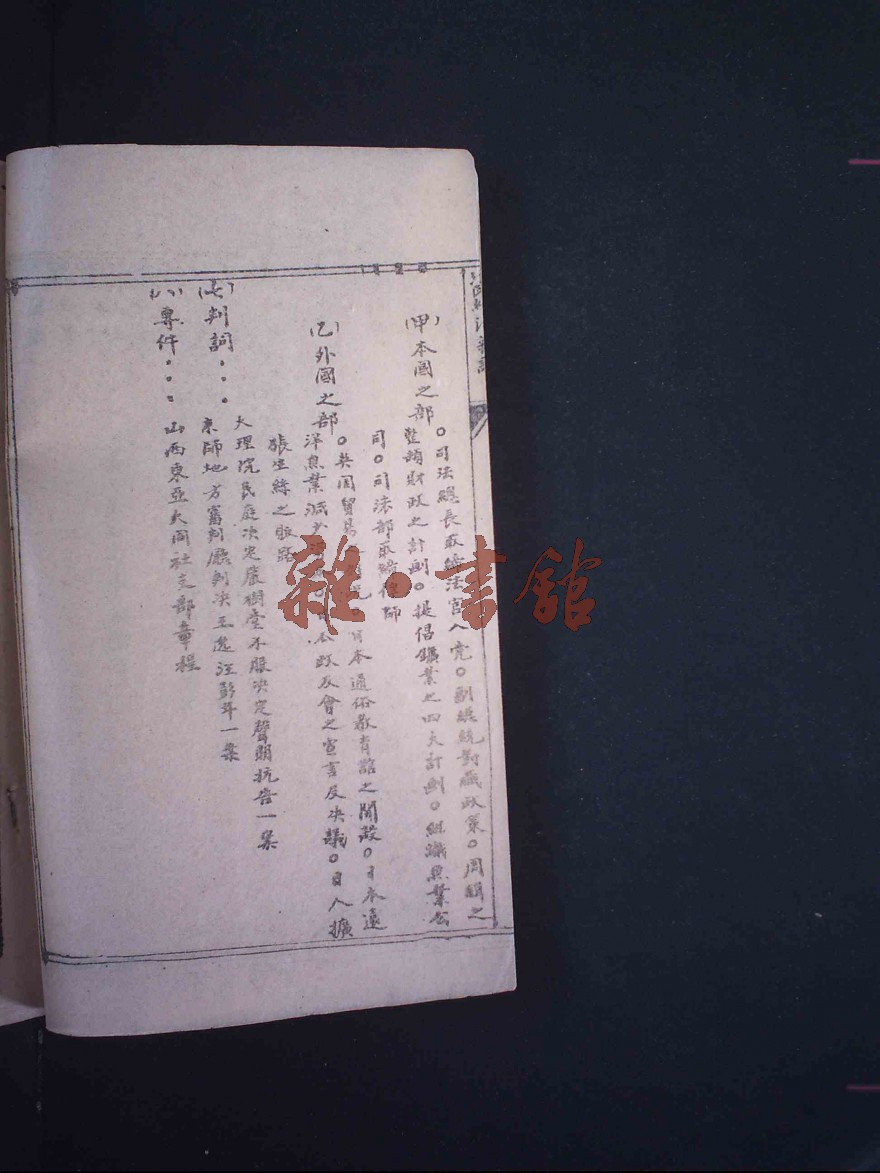 (甲)本國之部
○司法總長取締法官入党○副總統對藏政策○周緝之
整頓財政之計劃○提倡鑛業之四大計劃○組織漁業公
司○司法部取締律師
(乙)外國之部
○英国貿易 日本通俗教育館之開設○日本遠
洋漁業 减少 本政友會之宣言及决議○日人擴
張生絲之販路
(七)判詞...
大理院民庭决定嚴樹堂不服决定聲明抗告一案
京師地方審判廳判决王逸汪彭年一案
(八)專件...
山西東亞大同社支部章程
雜·書舘